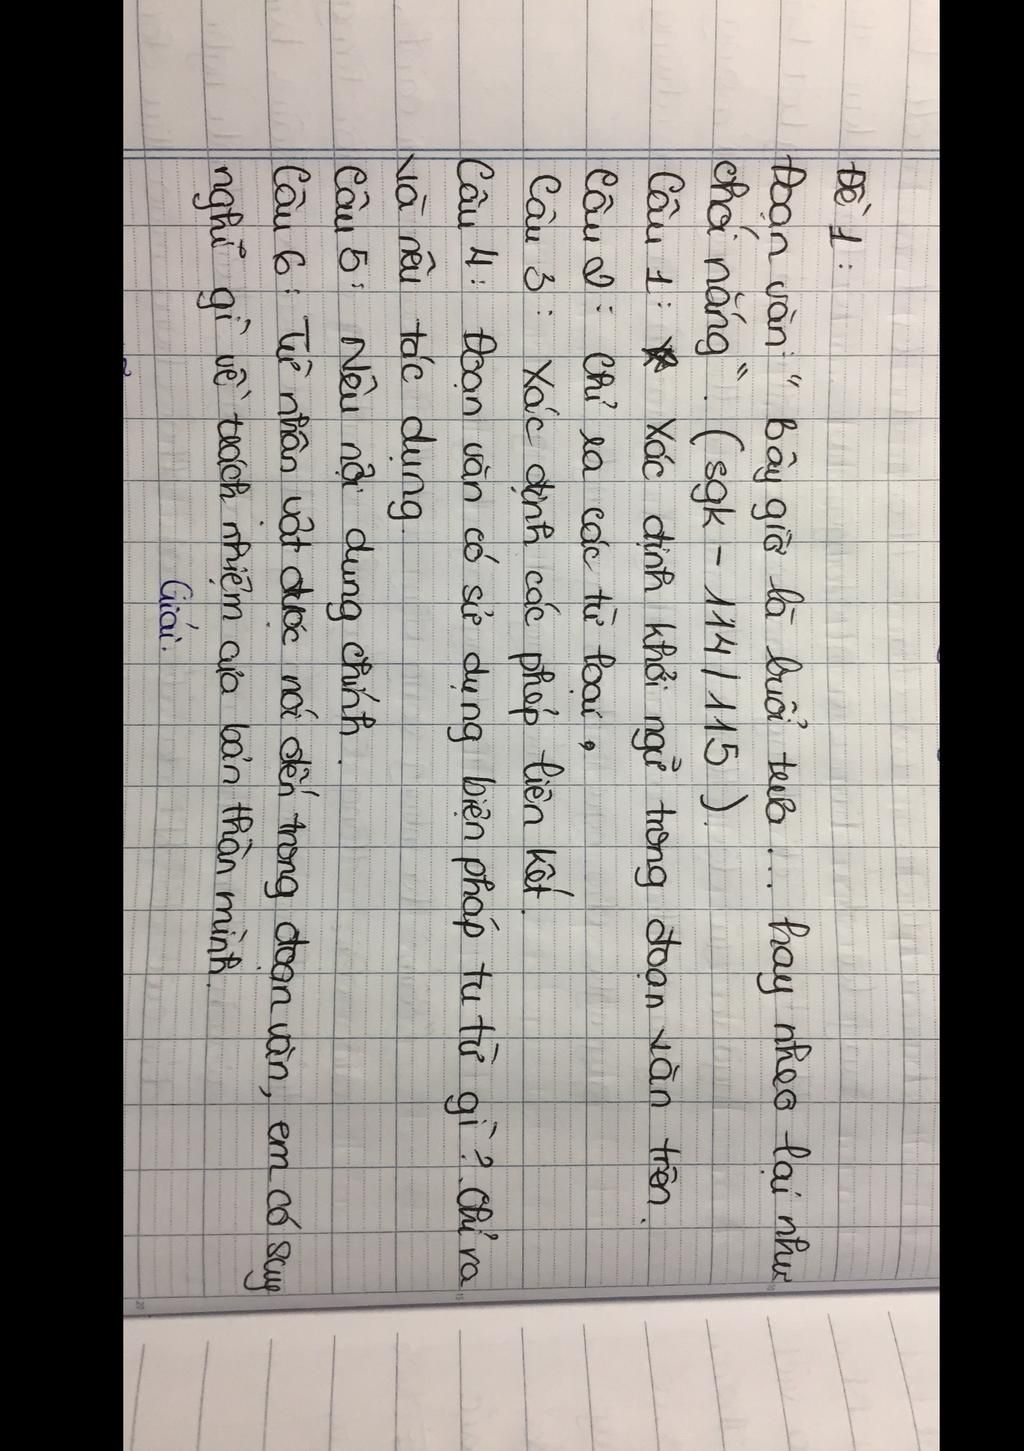 Đề 1:
Đoạn văn: " Bây giờ là buổi trưa ... hay nheo lại như
chói nắng ". (sgk - 114/115).
Câu 1: Xác định khởi ngữ trong đoạn văn trên.
Câu 2: Chỉ ra các từ loại,
Câu 3: Xác định các phép liên kết.
Câu 4: Đoạn văn có sử dụng biện pháp tu từ gì? Chỉ ra
và nêu tác dụng.
Câu 5: Nêu nội dung chính.
Câu 6: Từ nhân vật được nói đến trong đoạn văn, em có suy
nghĩ gì về trách nhiệm của bản thân mình.
Giải.